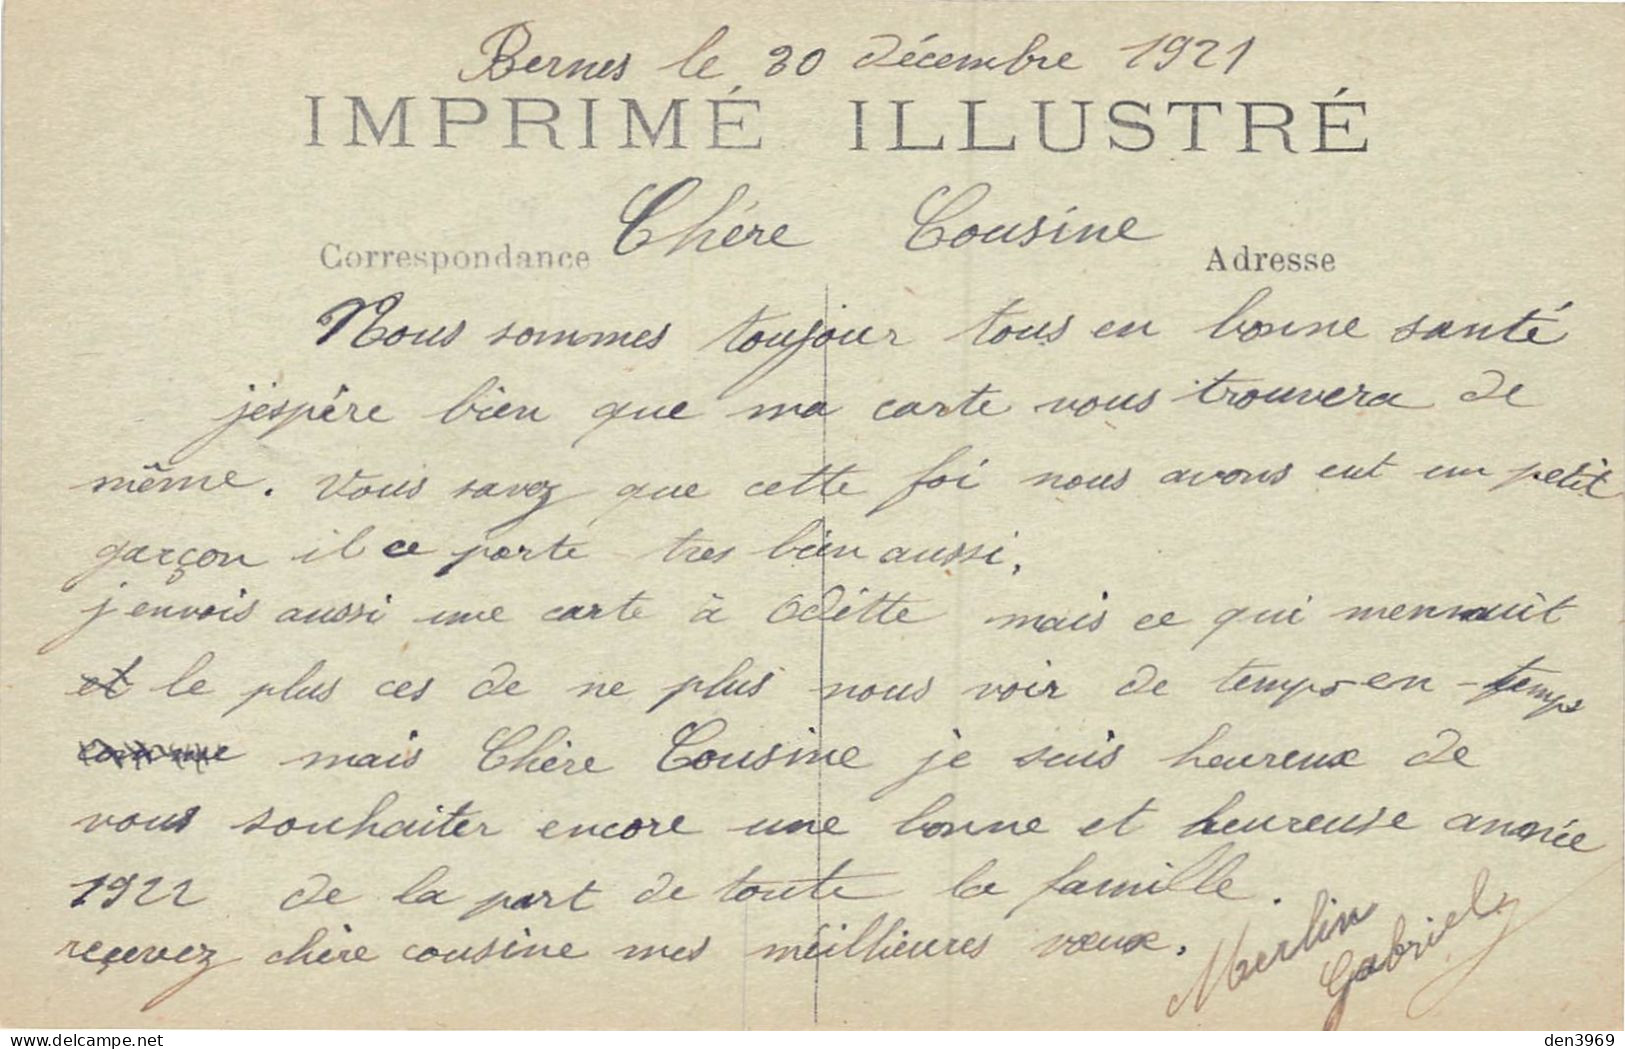 Bernes le 30 décembre 1921
IMPRIMÉ ILLUSTRÉ
Chére Cousine
Correspondance Adresse
Nous sommes toujour tous en bonne santé
j'éspère bien que ma carte vous trouvera de
même. Vous savez que cette foi nous avons eut un petit
garçon il ce porte tres bien aussi,
j'envois aussi une carte à Odétte mais ce qui mennuit
et le plus ces de ne plus nous voir de temps en temps
mais Chère Cousine je suis heureux de
vous souhaiter encore une bonne et heureuse année
1922 de la part de toute la famille.
reçevez chère cousine mes meillieures vœux.
Merlin
Gabriel
delcampe.net
den3969